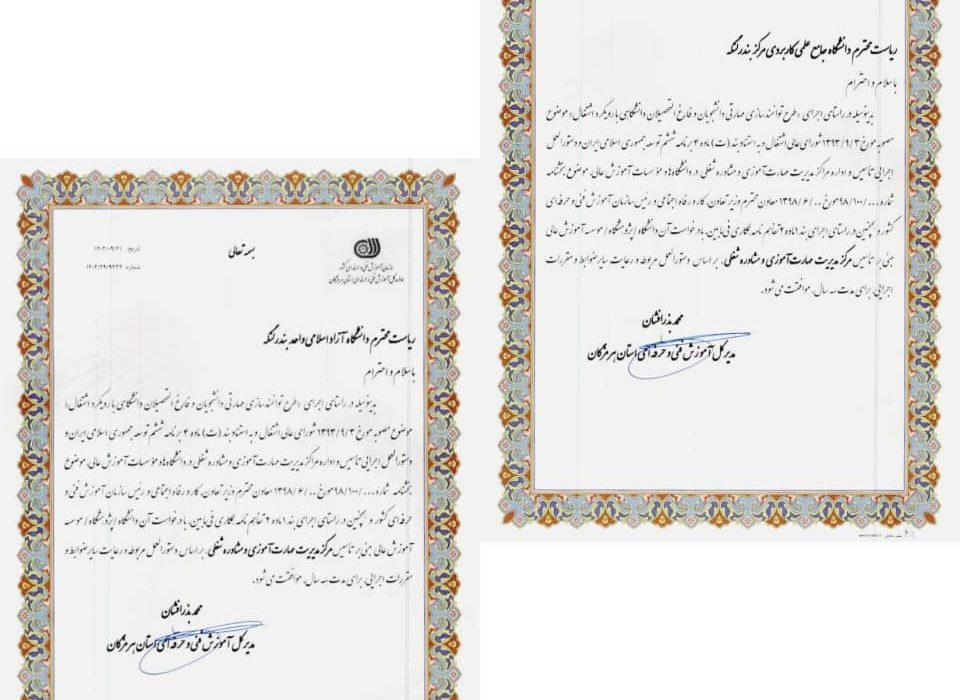 ریاست محترم دانشگاه جامع علمی کاربردی مرکز بندرلنگه
باسلام و احترام
بدینوسیله در راستای اجرای «طرح توانمندسازی مهارتی دانشجویان و فارغ التحصیلان دانشگاهی با رویکرد اشتغال» موضوع
مصوبه مورخ ۱۳۹۳/۹/۳ شورای عالی اشتغال و به استناد بند (ت) ماده ۴ برنامه ششم توسعه جمهوری اسلامی ایران و دستورالعمل
اجرایی تأسیس و اداره مراکز مدیریت مهارت آموزی و مشاوره شغلی در دانشگاه‌ها و مؤسسات آموزش عالی، موضوع بخشنامه
شماره ۹۸/۱۰۰/... مورخ ۱۳۹۸/۶/۰۰ معاون محترم وزیر تعاون، کار و رفاه اجتماعی و رئیس سازمان آموزش فنی و حرفه ای
کشور و همچنین در راستای اجرای بند ۱ ماده ۲ تفاهم نامه همکاری فی مابین، با درخواست آن دانشگاه /پژوهشگاه/ موسسه آموزش عالی
مبنی بر تاسیس مرکز مدیریت مهارت آموزی و مشاوره شغلی، بر اساس دستورالعمل مربوطه و رعایت سایر ضوابط و مقررات
اجرایی، برای مدت سه سال، موافقت می شود.
محمد بذرافشان
مدیر کل آموزش فنی و حرفه ای استان هرمزگان
بسمه تعالی
تاریخ: ۱۴۰۲/۰۹/۲۱
سازمان آموزش فنی و حرفه ای کشور
اداره کل آموزش فنی و حرفه ای استان هرمزگان
ریاست محترم دانشگاه آزاد اسلامی واحد بندرلنگه
باسلام و احترام
بدینوسیله در راستای اجرای «طرح توانمندسازی مهارتی دانشجویان و فارغ التحصیلان دانشگاهی با رویکرد اشتغال»
موضوع مصوبه مورخ ۱۳۹۳/۹/۳ شورای عالی اشتغال و به استناد بند (ت) ماده ۴ برنامه ششم توسعه جمهوری اسلامی ایران و
دستورالعمل اجرایی تأسیس و اداره مراکز مدیریت مهارت آموزی و مشاوره شغلی در دانشگاه‌ها و مؤسسات آموزش عالی، موضوع
بخشنامه شماره ۹۸/۱۰۰/... مورخ ۱۳۹۸/۶/۰۰ معاون محترم وزیر تعاون، کار و رفاه اجتماعی و رئیس سازمان آموزش فنی و
حرفه ای کشور و همچنین در راستای اجرای بند ۱ ماده ۲ تفاهم نامه همکاری فی مابین، با درخواست آن دانشگاه /پژوهشگاه/ موسسه
آموزش عالی مبنی بر تاسیس مرکز مدیریت مهارت آموزی و مشاوره شغلی، بر اساس دستورالعمل مربوطه و رعایت سایر ضوابط و
مقررات اجرایی، برای مدت سه سال، موافقت می شود.
محمد بذرافشان
مدیر کل آموزش فنی و حرفه ای استان هرمزگان